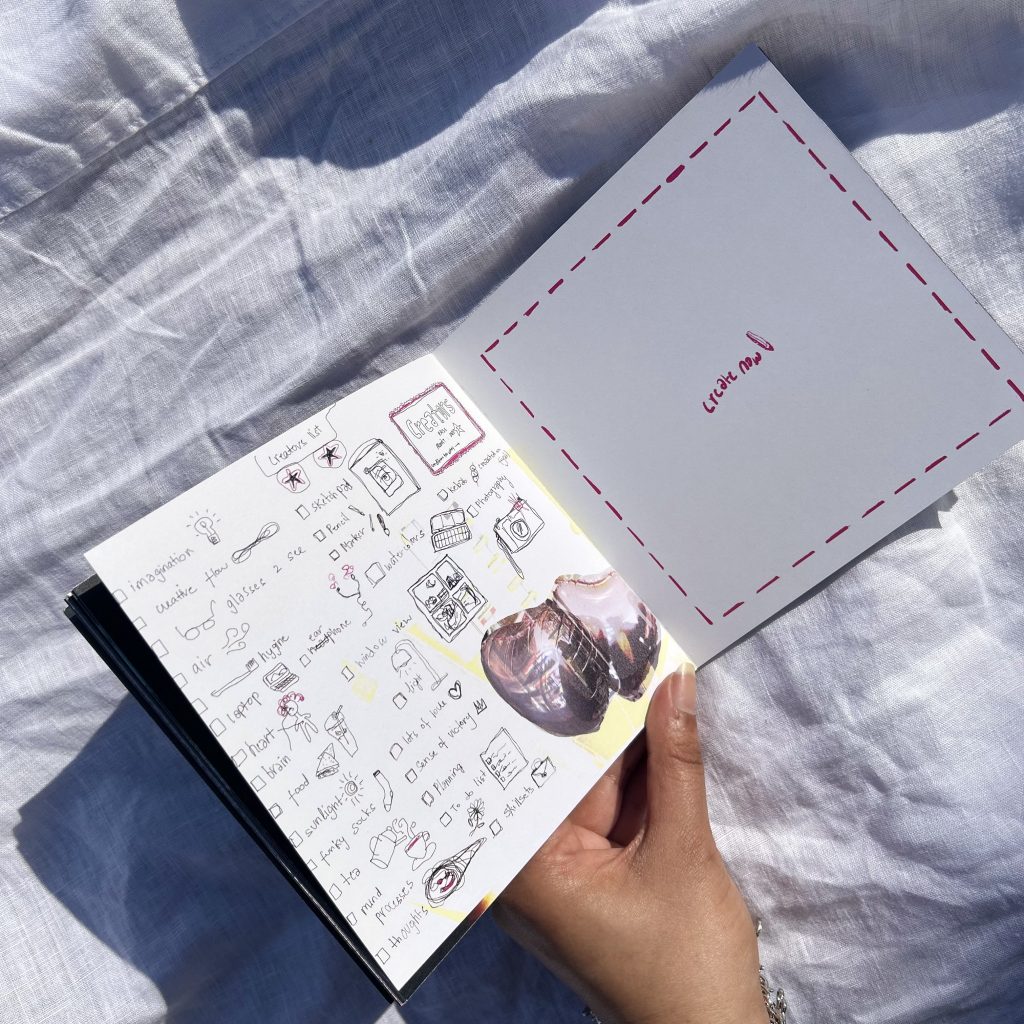 Creators list
imagination
creative flow
glasses 2 see
air
hygine
laptop
heart
brain
food
sunlight
funky socks
tea
mind
processes
thoughts
sketch pad
Pencil
Marker
watercolours
ear
phone
window view
light
lots of love
sense of victory
Planning
To do list
skillsets
Creators
Photography
create now